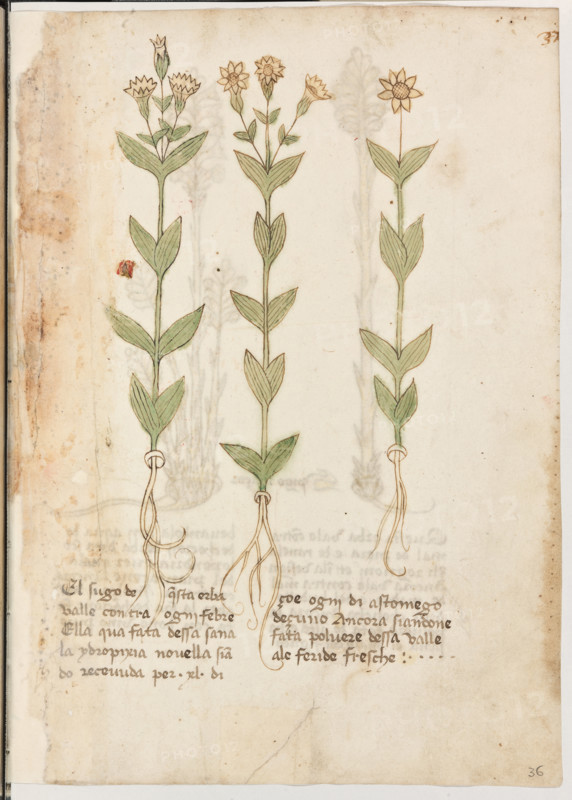 El sugo de q̃sta erba
valle contra ogni febre
Ella qua fata dessa sana
la ydropixia nouella siã
do receuuda per · xl · di
çoe ogni di a stomego
deçuno Ancora siandone
fata poluere dessa valle
ale feride fresche : · · · · ·
36